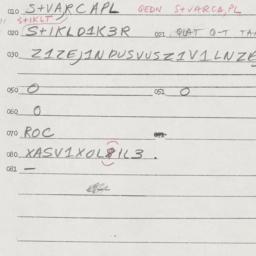 010 S+VARCAPL GEDN S+VARCA,PL
S+IKLT
020 S+IKLD1K3R 021
030 Z1ZEJ1NDUSVUSZ1V1LNZE
050 O 051 O
060 O
070 ROC
080 XASV1XOL8IL3.
081 —